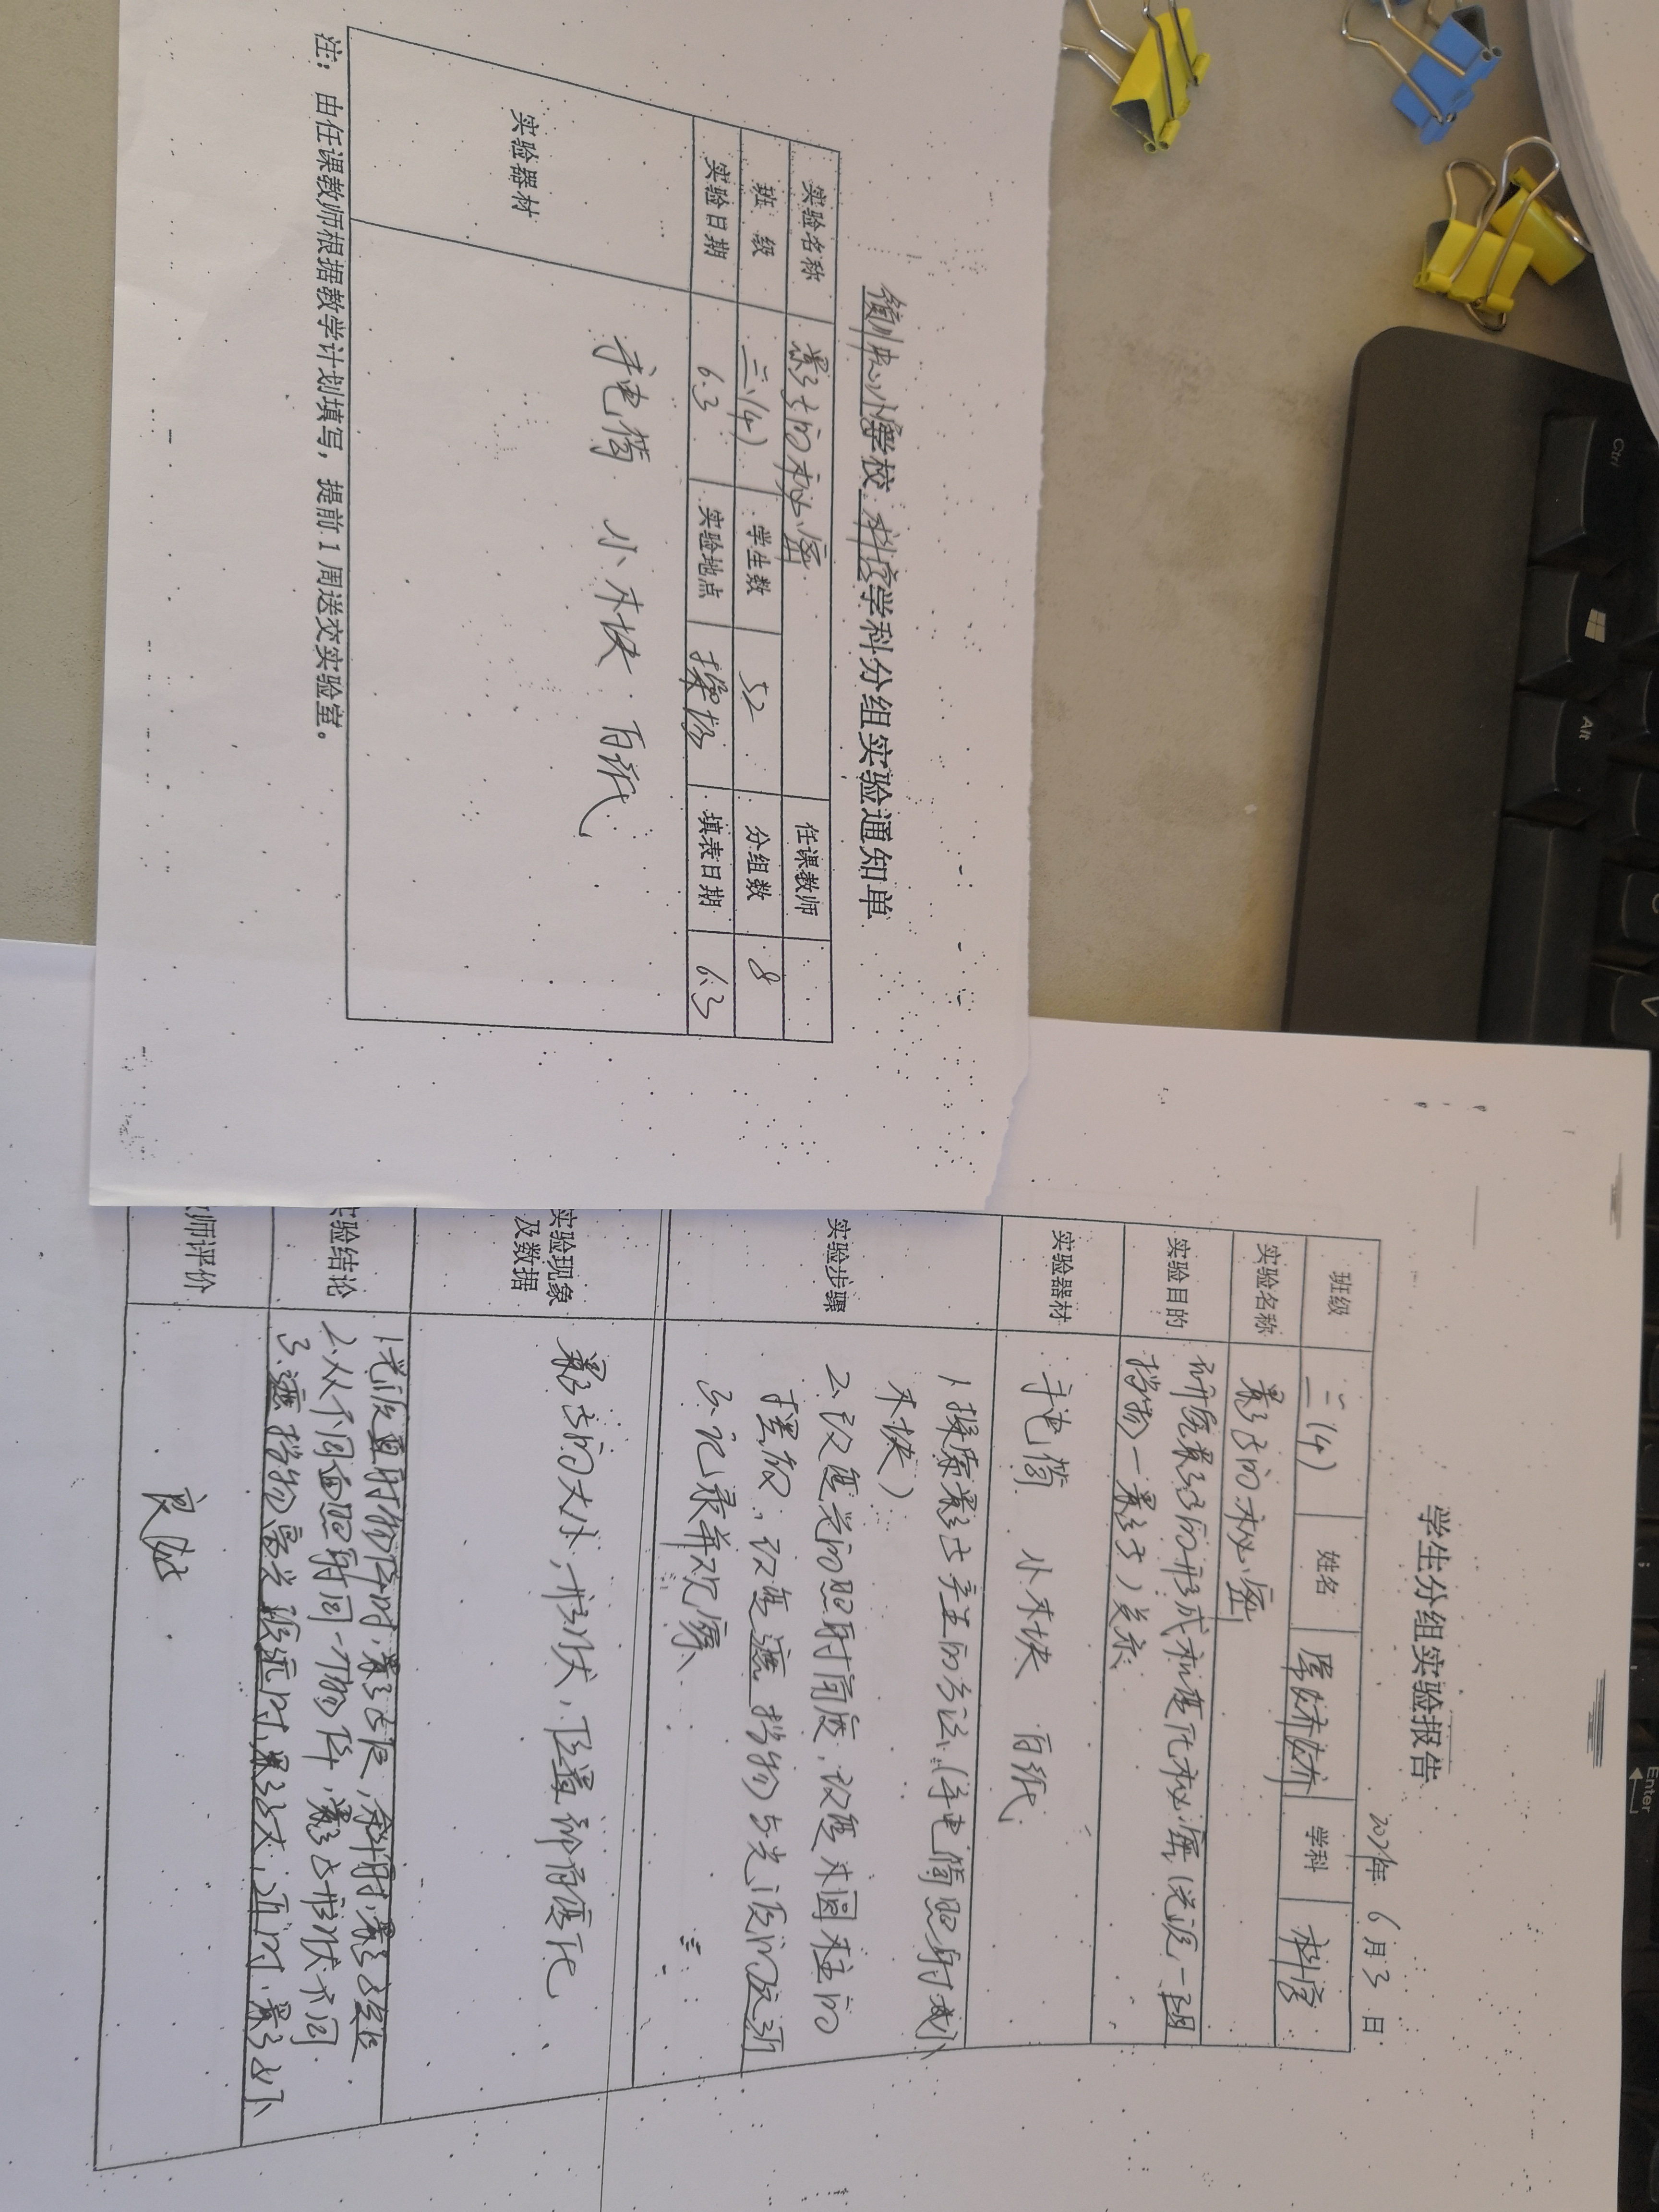 中心小学学校 科学学科分组实验通知单
实验名称 影子的秘密 任课教师
班 级 三(4) 学生数 52 分组数 8
实验日期 6.3 实验地点 操场 填表日期 6.3
实验器材 手电筒 小木块 白纸
注：由任课教师根据教学计划填写，提前1周送交实验室。
学生分组实验报告
6月3日
班级 三(4) 姓名 学科 科学
实验名称 影子的秘密
实验目的 研究影子的形成和变化秘密(光源一阻
挡物一影子)关系
实验器材 手电筒 小木块 白纸
实验步骤 1.探索影子产生的方法(手电筒照射小
木块)
2.改变光的照射高度,改变木圆柱的
摆放,改变遮挡物与光源的远近
3.记录并观察
实验现象
及数据 影子的大小,形状,位置都有变化
验结论 1.光源直射物体时,影子长,斜射,影子短
2.从不同面照射同一个物体,影子形状不同.
3.遮挡物离光源远时,影子大,近时,影子小
师评价 良好
Ctrl
Alt
C
V
Enter